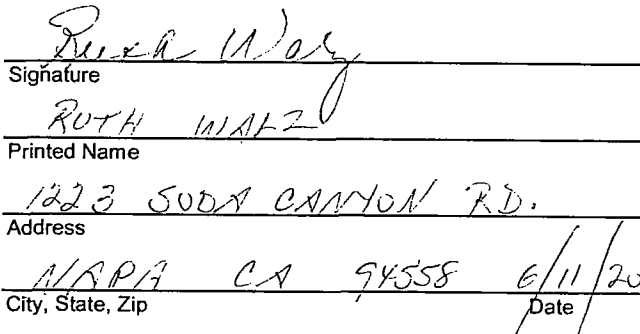 Ruth Walz
Signature
RUTH WALZ
Printed Name
1223 SODA CANYON RD.
Address
NAPA CA 94558 6/11/20
City, State, Zip Date